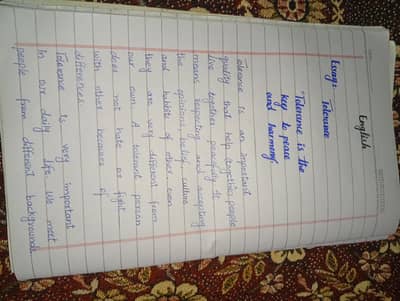 English
Essay: Tolerance
"Tolerance is the
key to peace
and harmony.
olerance is an important
quality that help people
live together peacefully. It
means respecting and accepting
the opinions, belief, culture
and habbits of other even
they are very different from
our own. A tolerante person
does not hate or fight
with other because of
differences.
Tolerance is very important
In our daily life. We meet
people from different backgrounds